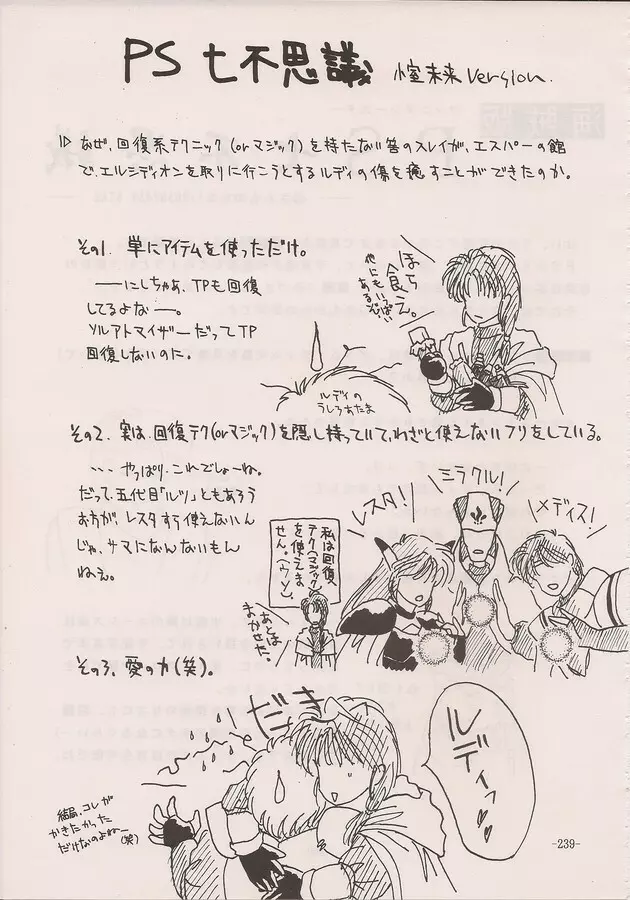 PS 七不思議 小室未来 Version.
なぜ、回復系テクニック(orマジック)を持たない筈のスレイが、エスパーの館
で、エルシディオンを取りに行こうとするルディの傷を癒すことができたのか。
その1. 単にアイテムを使っただけ。
――にしちゃあ、TPも回復
してるよな――。
ソルアトマイザーだってTP
回復しないのに。
ほら
食らえ。
他にもいっぱい
あるぞい
ルディの
うしろあたま
その2. 実は、回復テク(orマジック)を隠し持っていて、わざと使えないフリをしている。
・・・やっぱり、これでしょーね。
だって、五代目「ルツ」ともあろう
お方が、レスタすら使えないん
じゃ、サマになんないもん
ねぇ。
レスタ!
ミラクル!
メディス!
私は回復
テク(マジック)
を使えま
せん。(ウソ)
あとは
まかせた。
その3. 愛の力(笑)。
だき
ルディっ♥♥
結局、コレが
かきたかった
だけなのよねー
(笑)
-239-